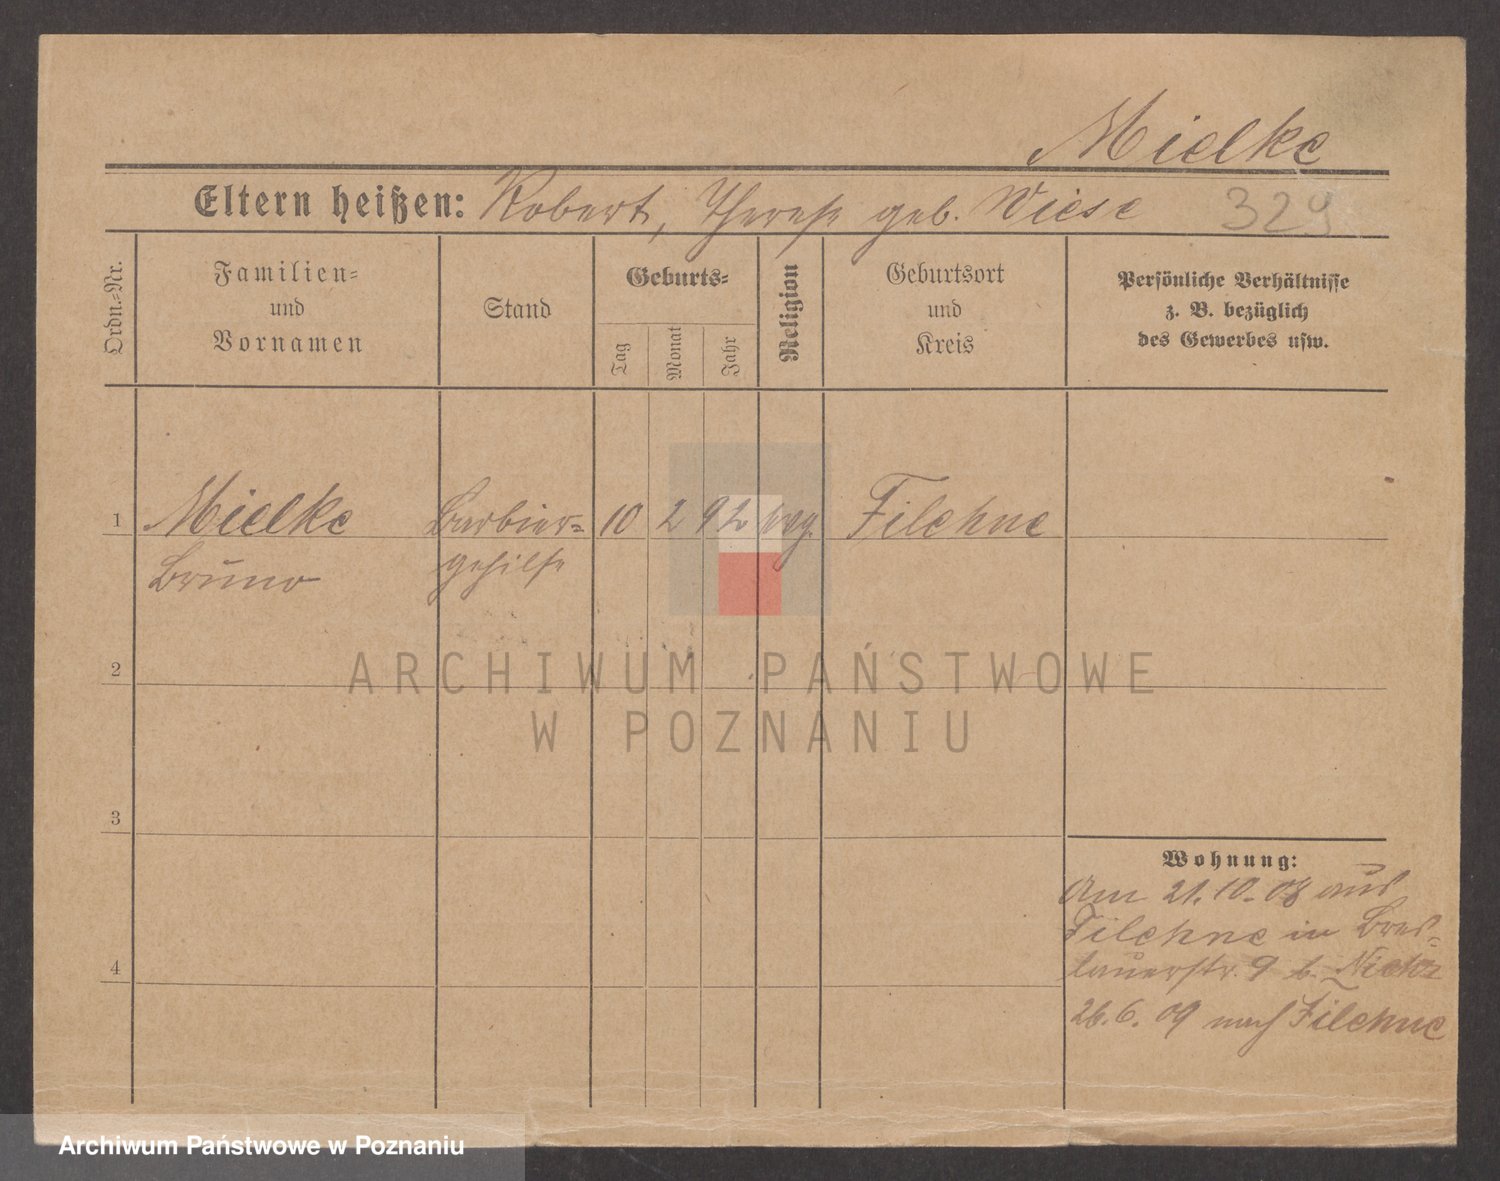 Mielke
Eltern heißen: Robert, Therese geb. Wiese 329
Ordn.-Nr.
Familien-
und
Vornamen
Stand
Geburts-
Tag
Monat
Jahr
Religion
Geburtsort
und
Kreis
Persönliche Verhältnisse
z. B. bezüglich
des Gewerbes usw.
1 Mielke Barbier- 10 2 92 evg. Filehne
Bruno gehilfe
2
ARCHIWUM PAŃSTWOWE
W POZNANIU
3
Wohnung:
Am 21.10.08 aus
Filehne in Bres-
lauerstr. 9 b.
4
26.6.09 nach Filehne
Archiwum Państwowe w Poznaniu